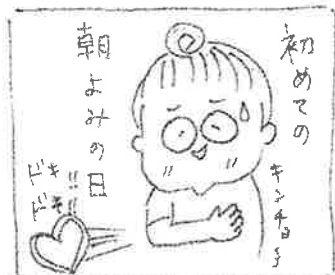 初めての
朝よみの日
キンチョー
ドキ!!
ドキ!!